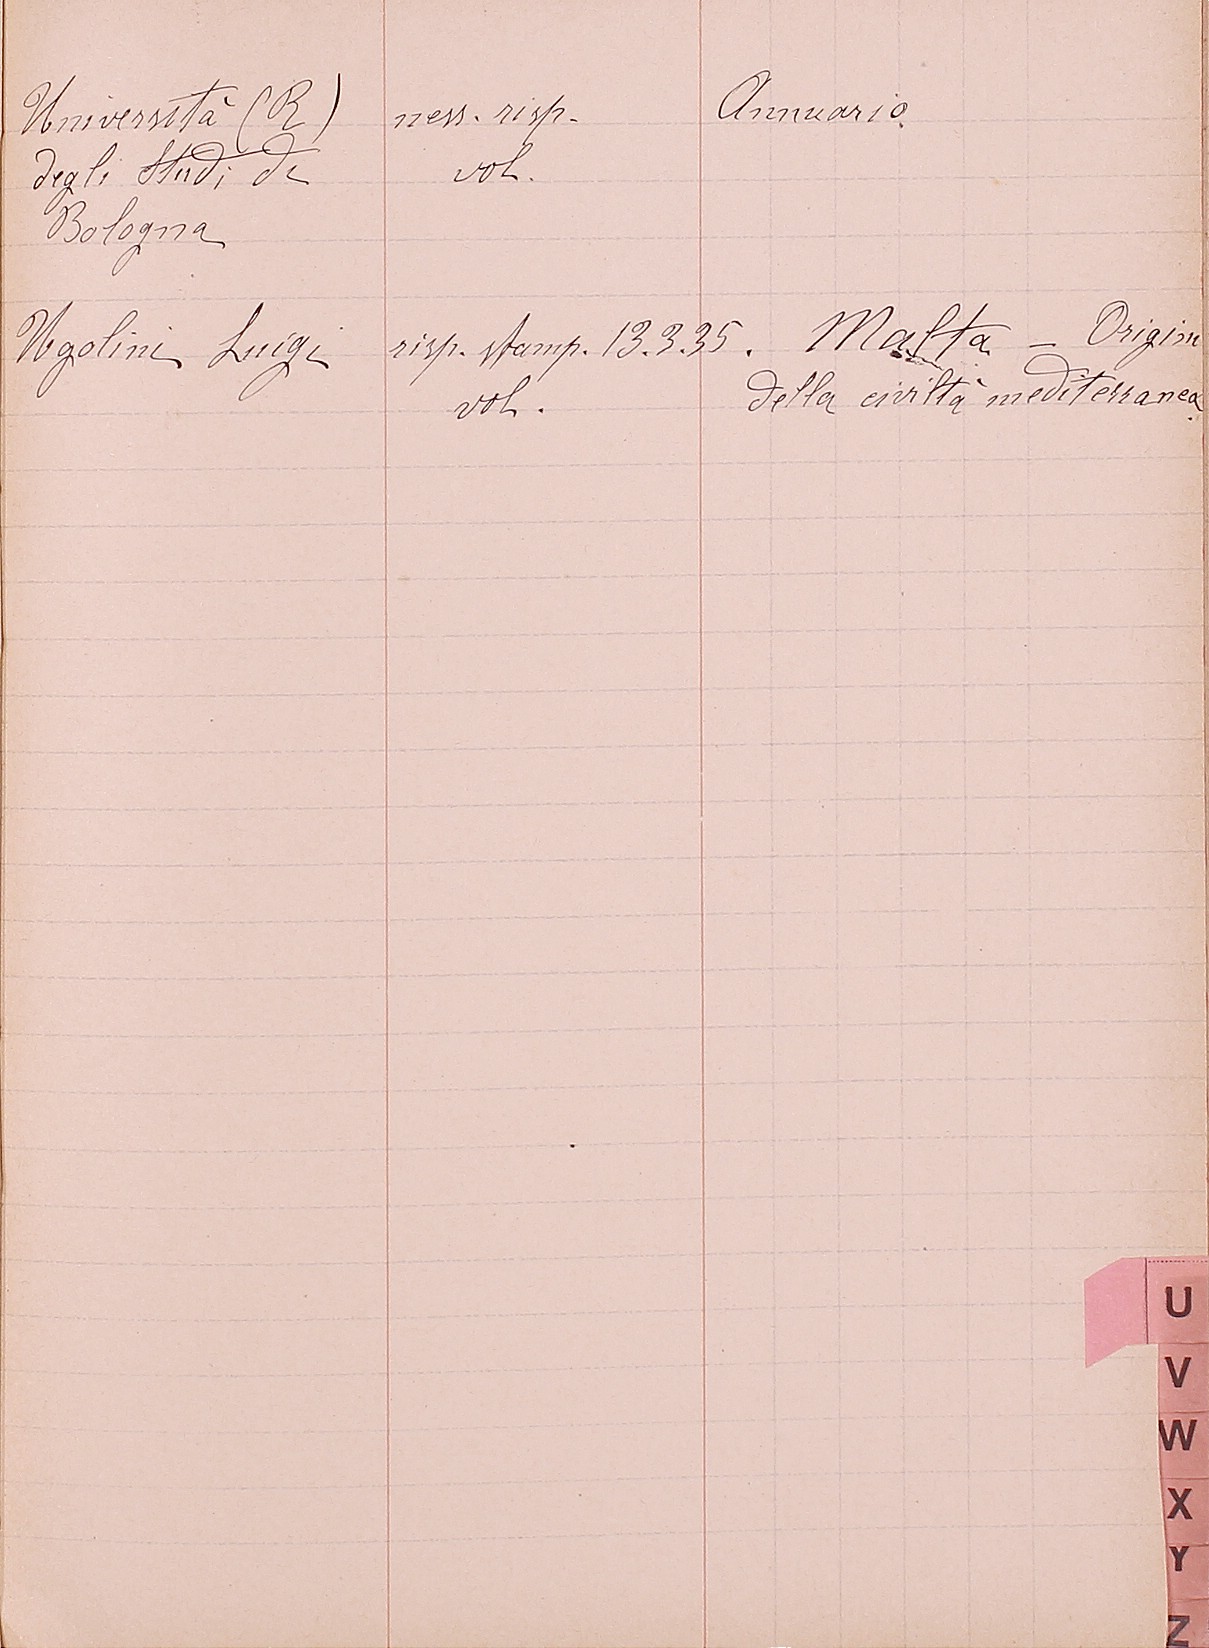 Università (R) ness. risp. Annuario.
degli Studi di vol.
Bologna
Ugolini Luigi risp. stamp. 13.3.35. Malta - Origini
vol. della civiltà mediterranea.
U
V
W
X
Y
Z